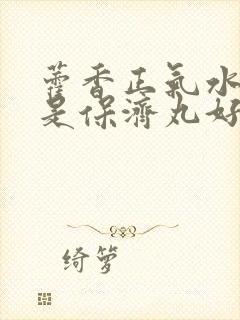 藿香正氣水
是保濟丸好
绮箩